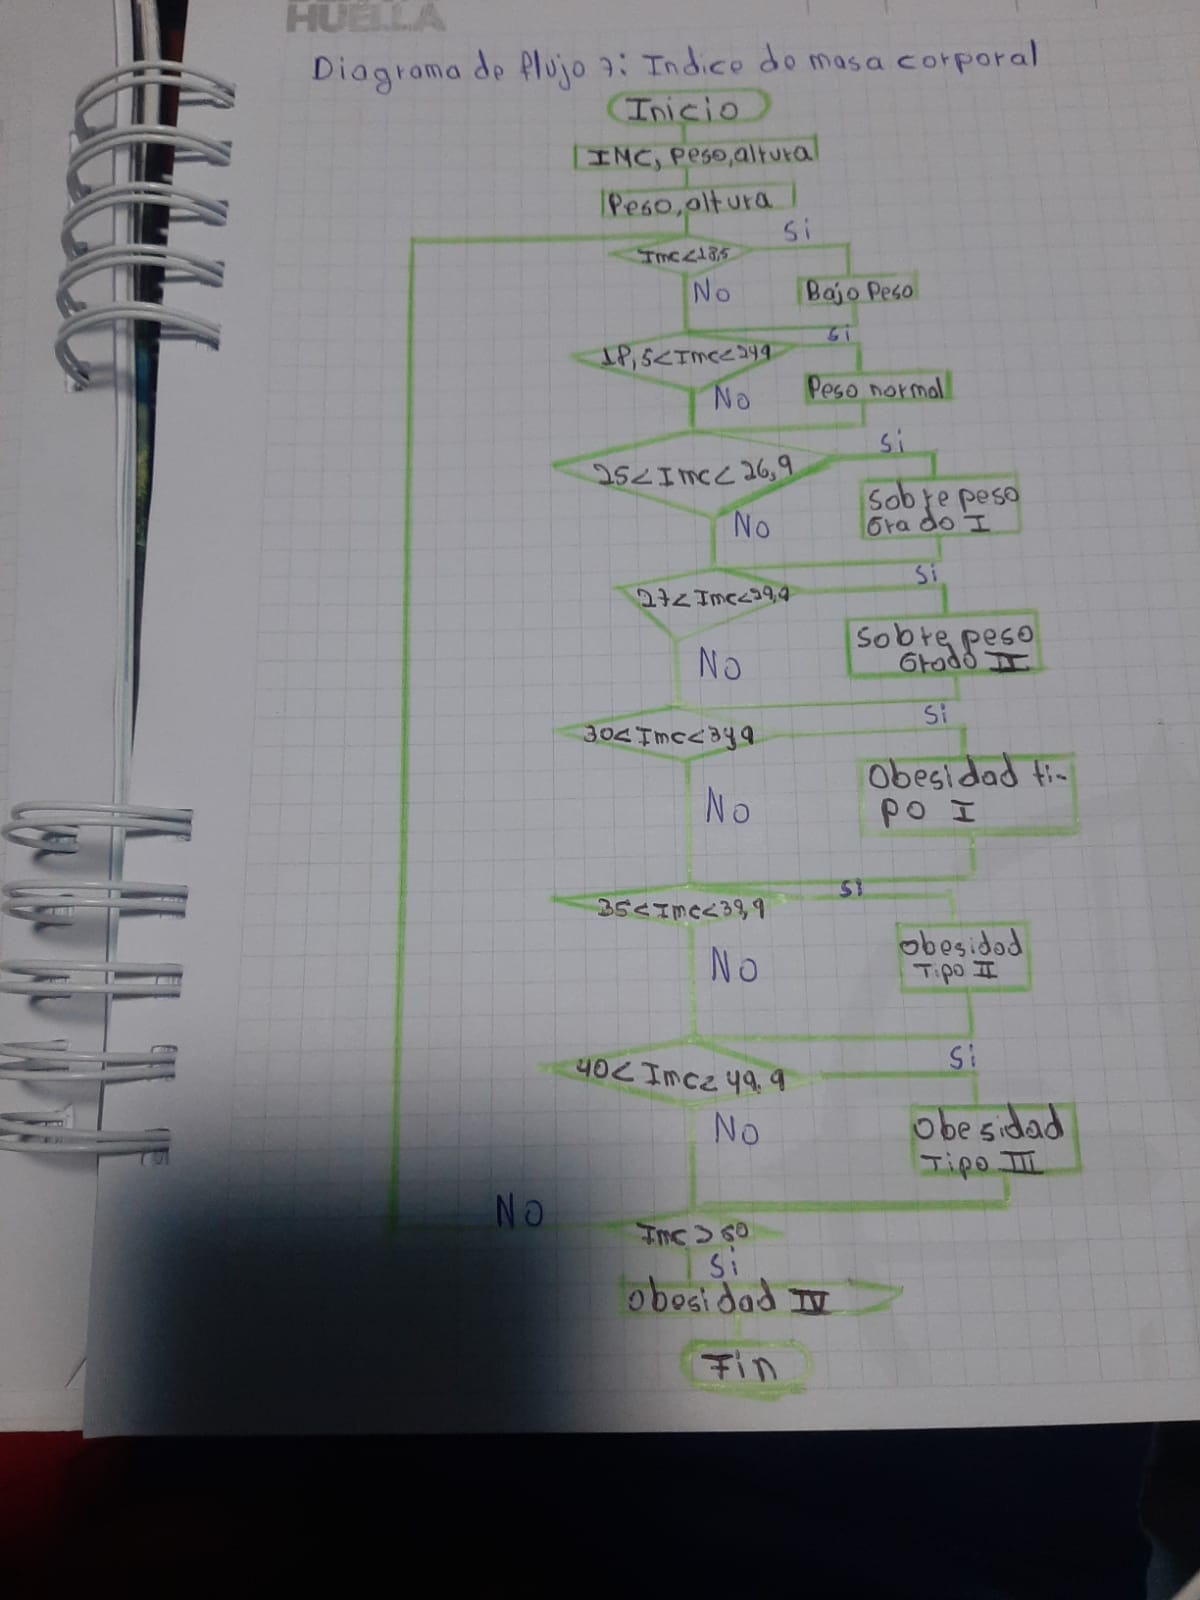 HUELLA
Diagrama de flujo 7: Indice de masa corporal
Inicio
IMC, Peso, altura
Peso, altura
Si
Imc<18,5
No
Bajo Peso
Si
18,5<Imc<249
No
Peso normal
Si
25<Imc<26,9
Sobre peso
Grado I
No
Si
27<Imc<29,9
Sobre peso
Grado II
No
Si
30<Imc<349
Obesidad ti-
po I
No
Si
35<Imc<39,9
No
Obesidad
Tipo II
Si
40<Imc<49.9
No
Obesidad
Tipo III
No
Imc>50
Si
Obesidad IV
Fin